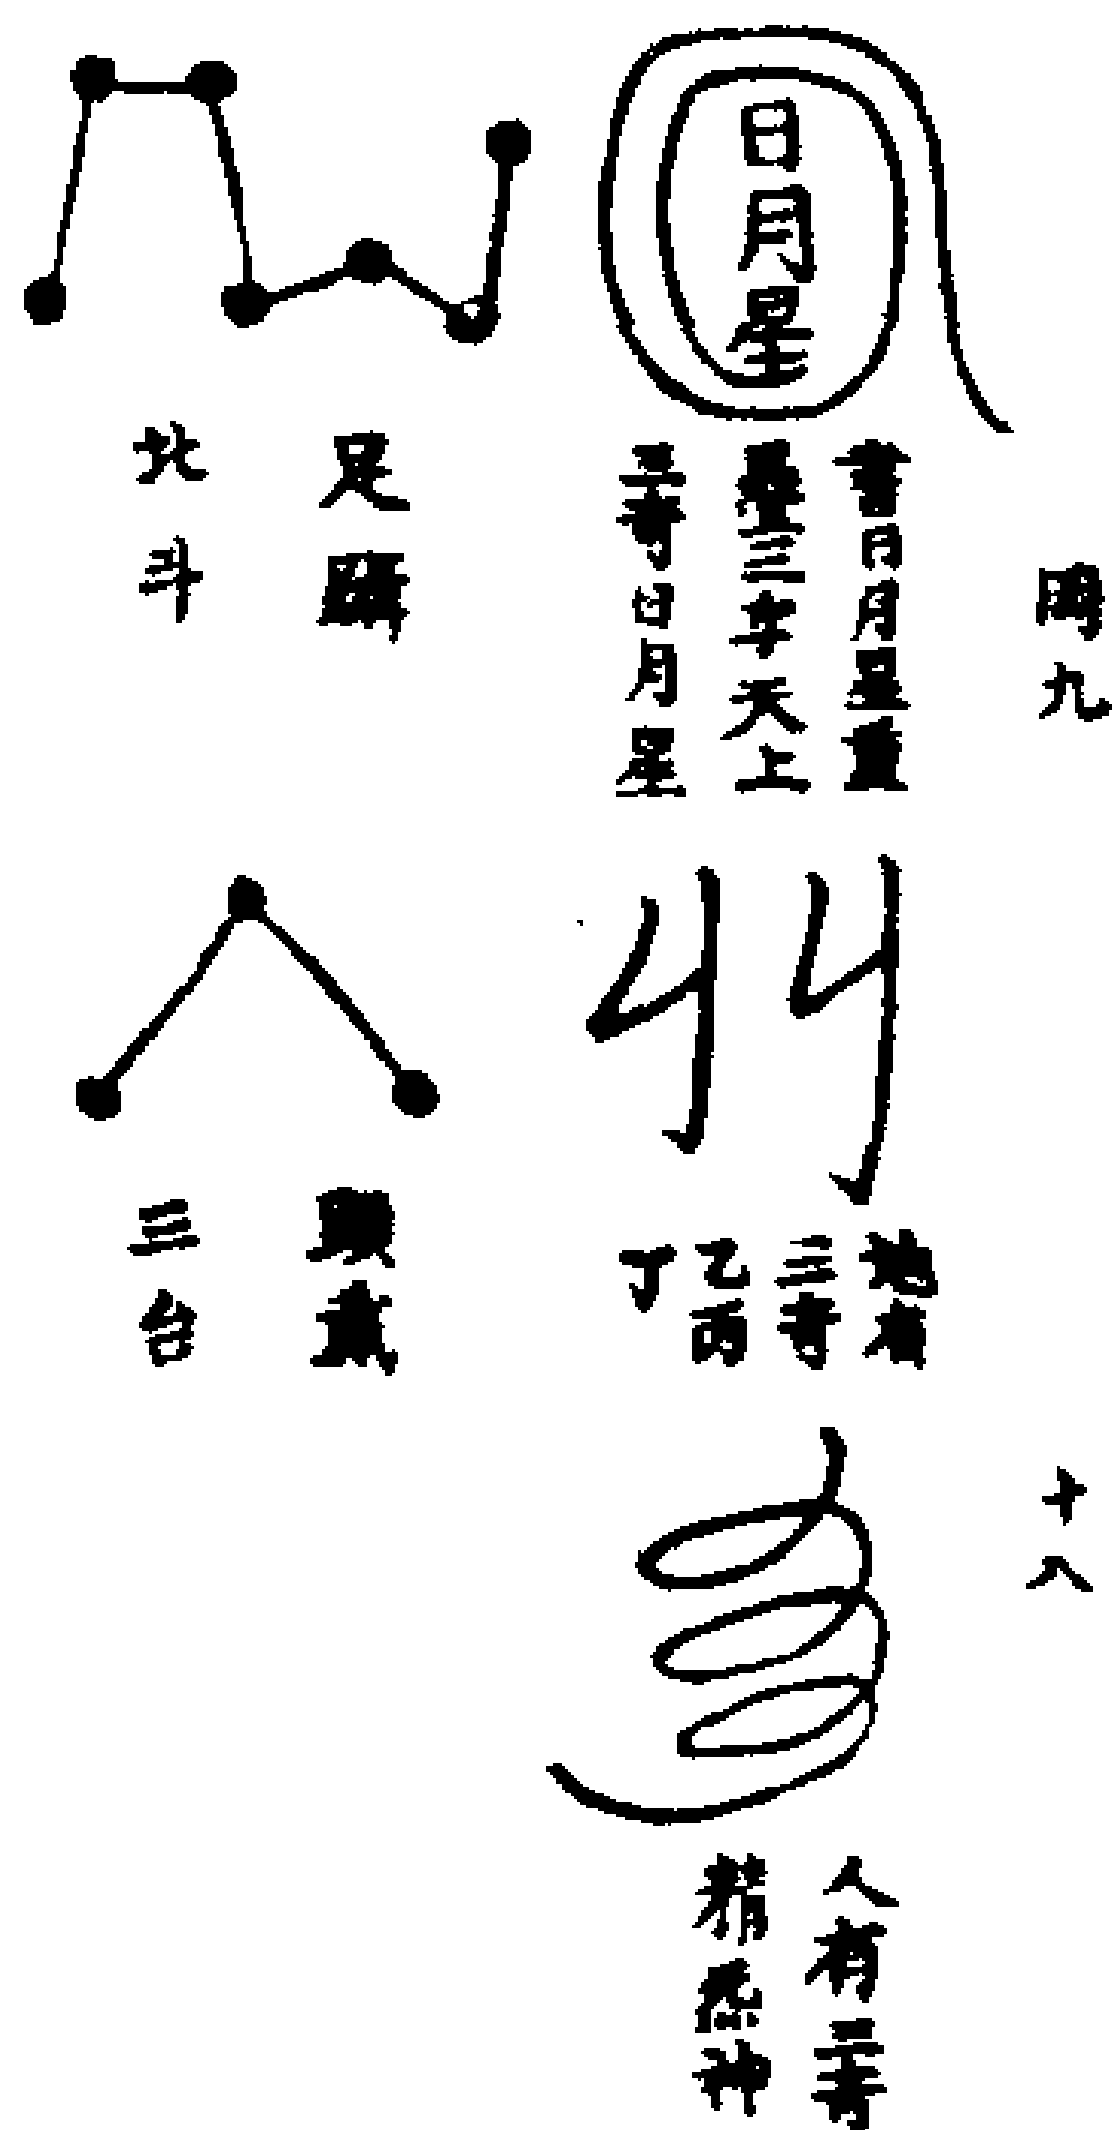 九
十八
日月星
書日月星重
三字天上
三奇日月星
地有
三奇
乙丙
丁
人有三奇
精炁神
足躡
北斗
頭戴
三台